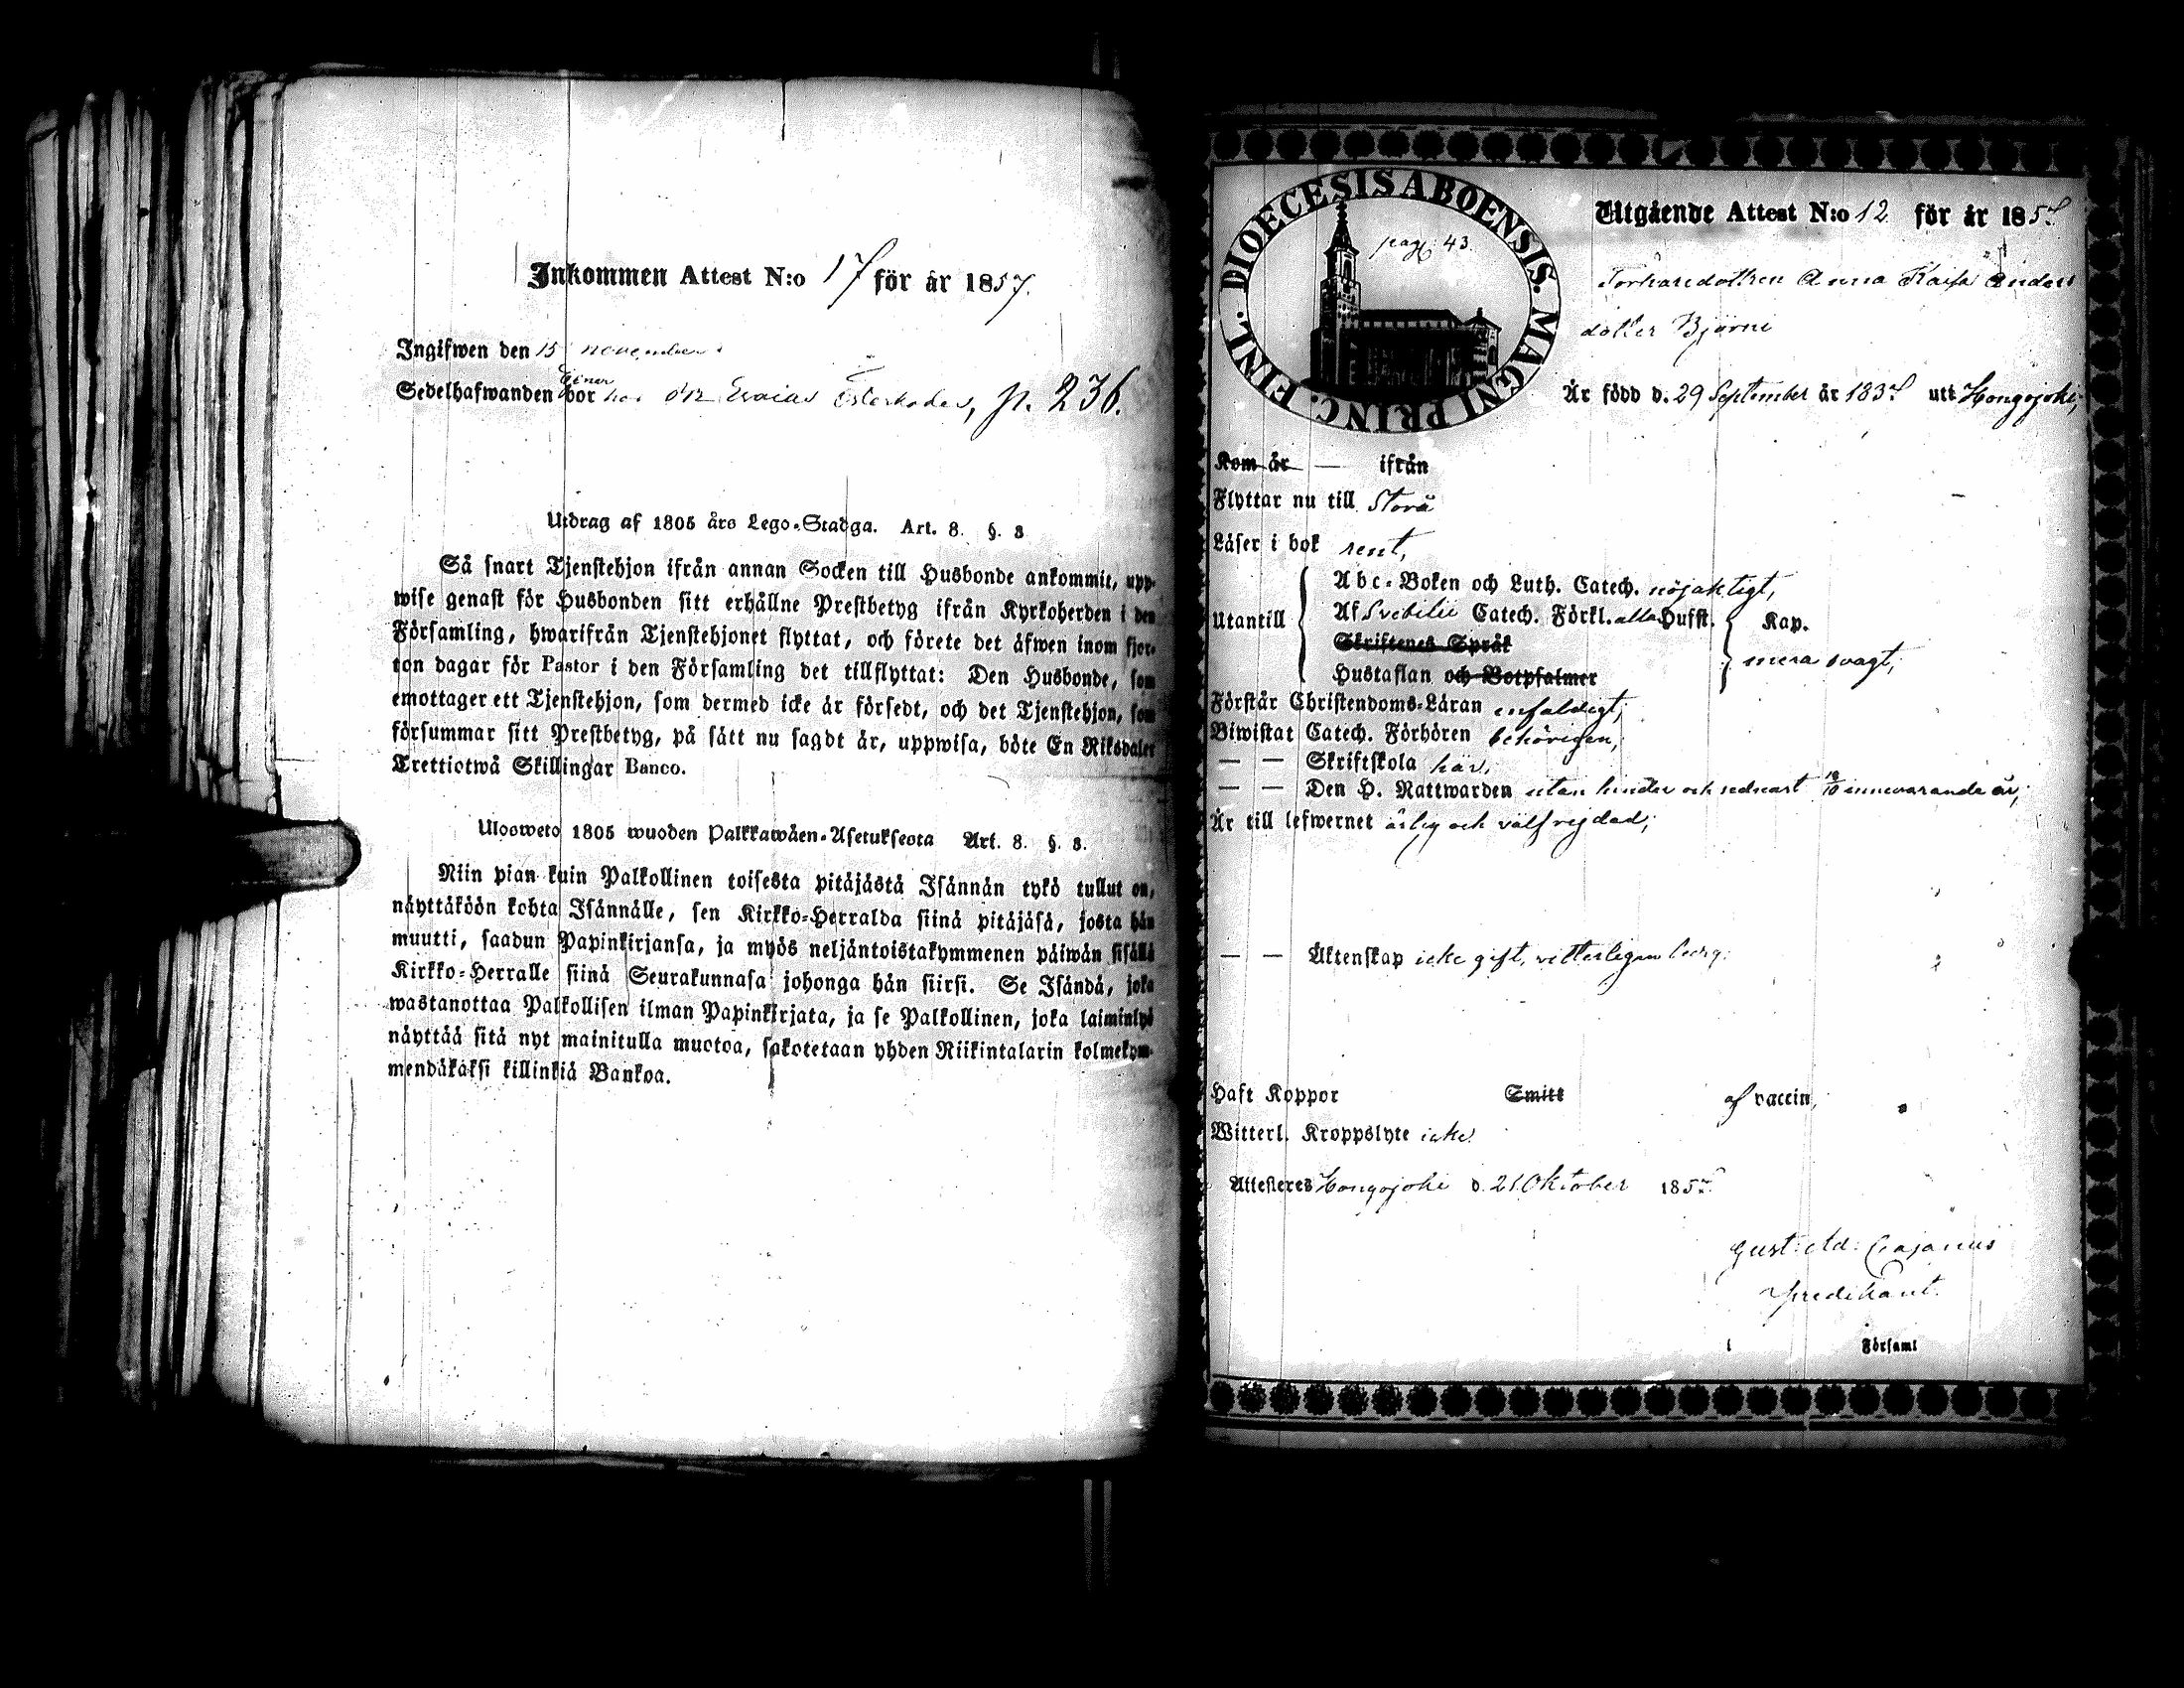 Inkommen Attest N:o 17 för år 1857.
Ingifwen den 15 november.
tjenar
Sedelhafwanden bor hos Esaias p. 236.
Utdrag af 1805 års Lego-Stadga. Art. 8. §. 8
Så snart Tjenstehjon ifrån annan Socken till Husbonde ankommit, upp-
wise genast för Husbonden sitt erhållne Prestbetyg ifrån Kyrkoherden i den
Församling, hwarifrån Tjenstehjonet flyttat, och förete det äfwen inom fjor-
ton dagar för Pastor i den Församling det tillflyttat: Den Husbonde, som
emottager ett Tjenstehjon, som dermed icke är försedt, och det Tjenstehjon, som
försummar sitt Prestbetyg, på sätt nu sagdt är, uppwisa, böte En Riksdaler
Trettiotwå Skillingar Banco.
Ulosweto 1805 wuoden Palkkawäen-Asetuksesta Art. 8. §. 8.
Niin pian kuin Palkollinen toisesta pitäjästä Isännän tykö tullut on,
näyttäköön kohta Isännälle, sen Kirkko-Herralda siinä pitäjäsä, josta hän
muutti, saadun Papinkirjansa, ja myös neljäntoistakymmenen päiwän sisällä
Kirkko-Herralle siinä Seurakunnasa johonga hän siirsi. Se Isändä, joka
wastanottaa Palkollisen ilman Papinkirjata, ja se Palkollinen, joka laiminlyö
näyttää sitä nyt mainitulla muotoa, sakotetaan yhden Riikintalarin kolmekym-
mendäkaksi killinkiä Bankoa.
DIOECESIS ABOENSIS. MAGNI PRINC. FINL.
pag: 43.
Utgående Attest N:o 12 för år 1857
Torparedottren Anna Kajsa Anders
dotter Björni
Är född d. 29 September år 1837 uti Hongojoki,
Kom år — ifrån
Flyttar nu till Storå
Läser i bok rent,
Abc-Boken och Luth. Catech. nöjaktigt,
Utantill Af Svebilii Catech. Förkl. alla Hufst. Kap.
Skriftenes Språk
mera svagt,
Hustaflan och Botpsalmer
Förstår Christendoms-Läran enfaldigt;
Biwistat Catech. Förhören behörigen,
— — Skriftskola här,
— — Den H. Nattwarden utan hinder och sednast 18/10 innevarande år,
Är till lefwernet ärlig och välfrejdad;
— — Äktenskap icke gift, vetterligen ledig.
Haft Koppor Smitt af vaccin,
Witterl. Kroppslyte icke.
Attesteres Hongojoki d. 21 Oktober 1857
Gust: Ad: Cajanus
Predikant.
i Församl